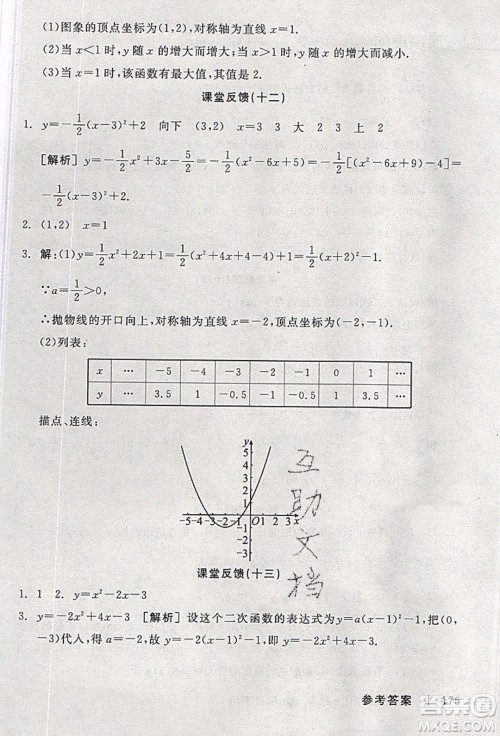 (1)图象的顶点坐标为(1,2),对称轴为直线 x=1.
(2)当 x<1 时,y随 x 的增大而增大;当 x>1 时,y随 x 的增大而减小.
(3)当 x=1 时,该函数有最大值,其值是 2.
课堂反馈(十二)
1. y=-1/2(x-3)²+2 向下 (3,2) x=3 3 大 2 3 上 2
[解析] y=-1/2x²+3x-5/2=-1/2(x²-6x+5)=-1/2[(x²-6x+9)-4]=
-1/2(x-3)²+2.
2. (1,2) x=1
3. 解:(1)y=1/2x²+2x+1=1/2(x²+4x+4-2)=1/2(x+2)²-1.
∵a=1/2>0,
∴抛物线的开口向上,对称轴为直线 x=-2,顶点坐标为(-2,-1).
(2)列表:
x … -5 -4 -3 -2 -1 0 1 …
y … 3.5 1 -0.5 -1 -0.5 1 3.5 …
描点、连线:
y
5
4
3
2
1
-5 -4 -3 -2 -1 O 1 2 3 x
-1
-2
互助文档
课堂反馈(十三)
1. 1 2. y=x²-2x-3
3. y=-2x²+4x-3 [解析] 设这个二次函数的表达式为y=a(x-1)²-1,把(0,
-3)代入,得 a=-2,故y=-2(x-1)²-1,即y=-2x²+4x-3.
参考答案